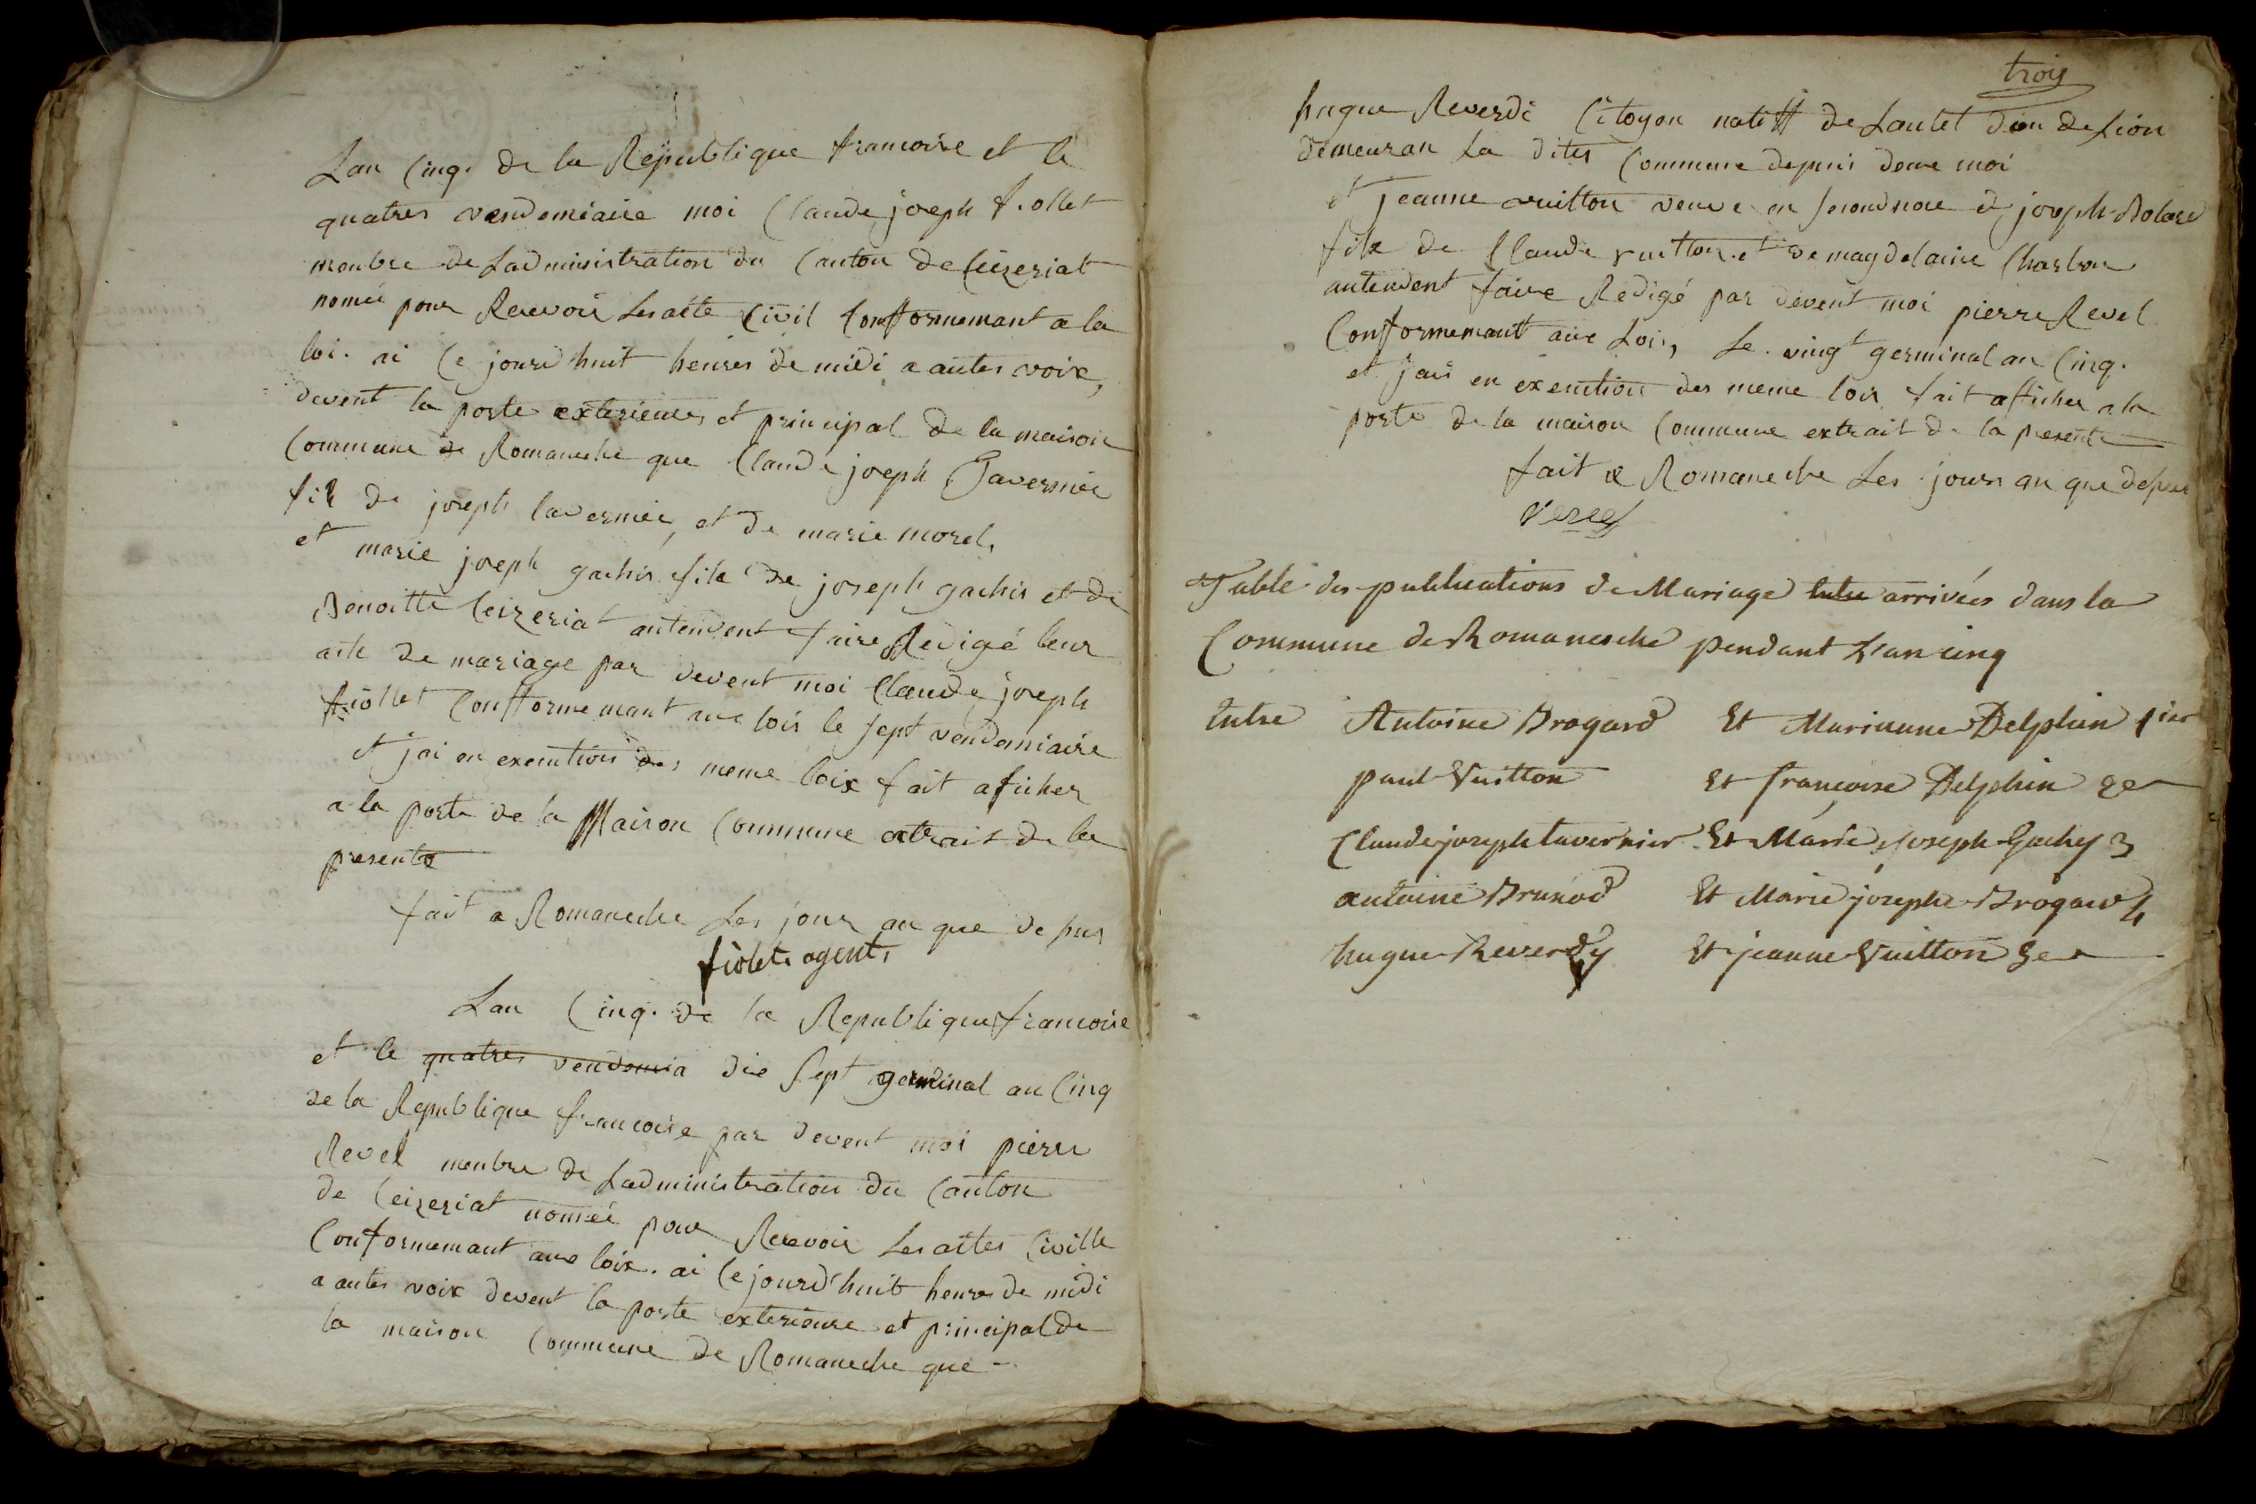 Lan Cinq. de la Republique francoise et le
quatres vendemiaire moi Claude joseph fiollet
menbre de Ladministration du Canton de Ceizeriat
nomée pour Recevoir Les acte Civil Confformemant a la
loi. ai Ce jourd huit heures de midi a autes voix,
devent la porte exterieures et principal de la maison
Commune de Romaneche que Claude joseph Tavernier
fils de joseph tavernier, et de marie morel,
et marie joseph gachis file de joseph gachis et de
Benoitte Ceizeriat antendent faire Redigé leur
acte de mariage par devent moi Claude joseph
fiollet Confformemant aux lois le sept vendemiaire
et jai en execution des meme loix fait aficher
a la porte de la Maison Commune extrait de la
presente
fait a Romaneche Les jour an que depus
fiolet agent,
Lan Cinq. de la Republique francoise
et le quatres vendemia die sept germinal an Cinq
de la Republique francoise par devent moi pierre
Revel menbre de Ladministration du Canton
de Ceizeriat nomée pour Recevoir Les actes Civille
Conformemant aux loix. ai Ce jourd'huit heures de midi
a autes voix devent la porte exterieure et principal de
la maison Commune de Romaneche que -
trois
hugue Reverdi Citoyon natiff de de Lion
demeuran La dites Commune depuis moi
et jeanne vuitton veuve en de joseph
file de Claude vuitton. et de magdelaine Charbon
antendent faire Redigé par devent moi pierre Revel
Conformemant aux Lois, Le. vingt germinal an Cinq.
et jais en execution des meme loix fait aficher a la
porte de la maison Commune extrait de la presente
fait a Romaneche Les jours an que depus
revel
Table des publications de Mariage Entre arrivées dans la
Commune de Romanesche pendant L'an cinq
Entre Antoine Brogard Et Marianne Delphin 1ier
paul Vuitton Et françoise Delphin 2e
Claude joseph tavernier Et Marie Joseph Gachy 3
antoine Brunod Et Marie joseph Brogard 4
hugue Reverdy Et jeanne Vuitton 5e